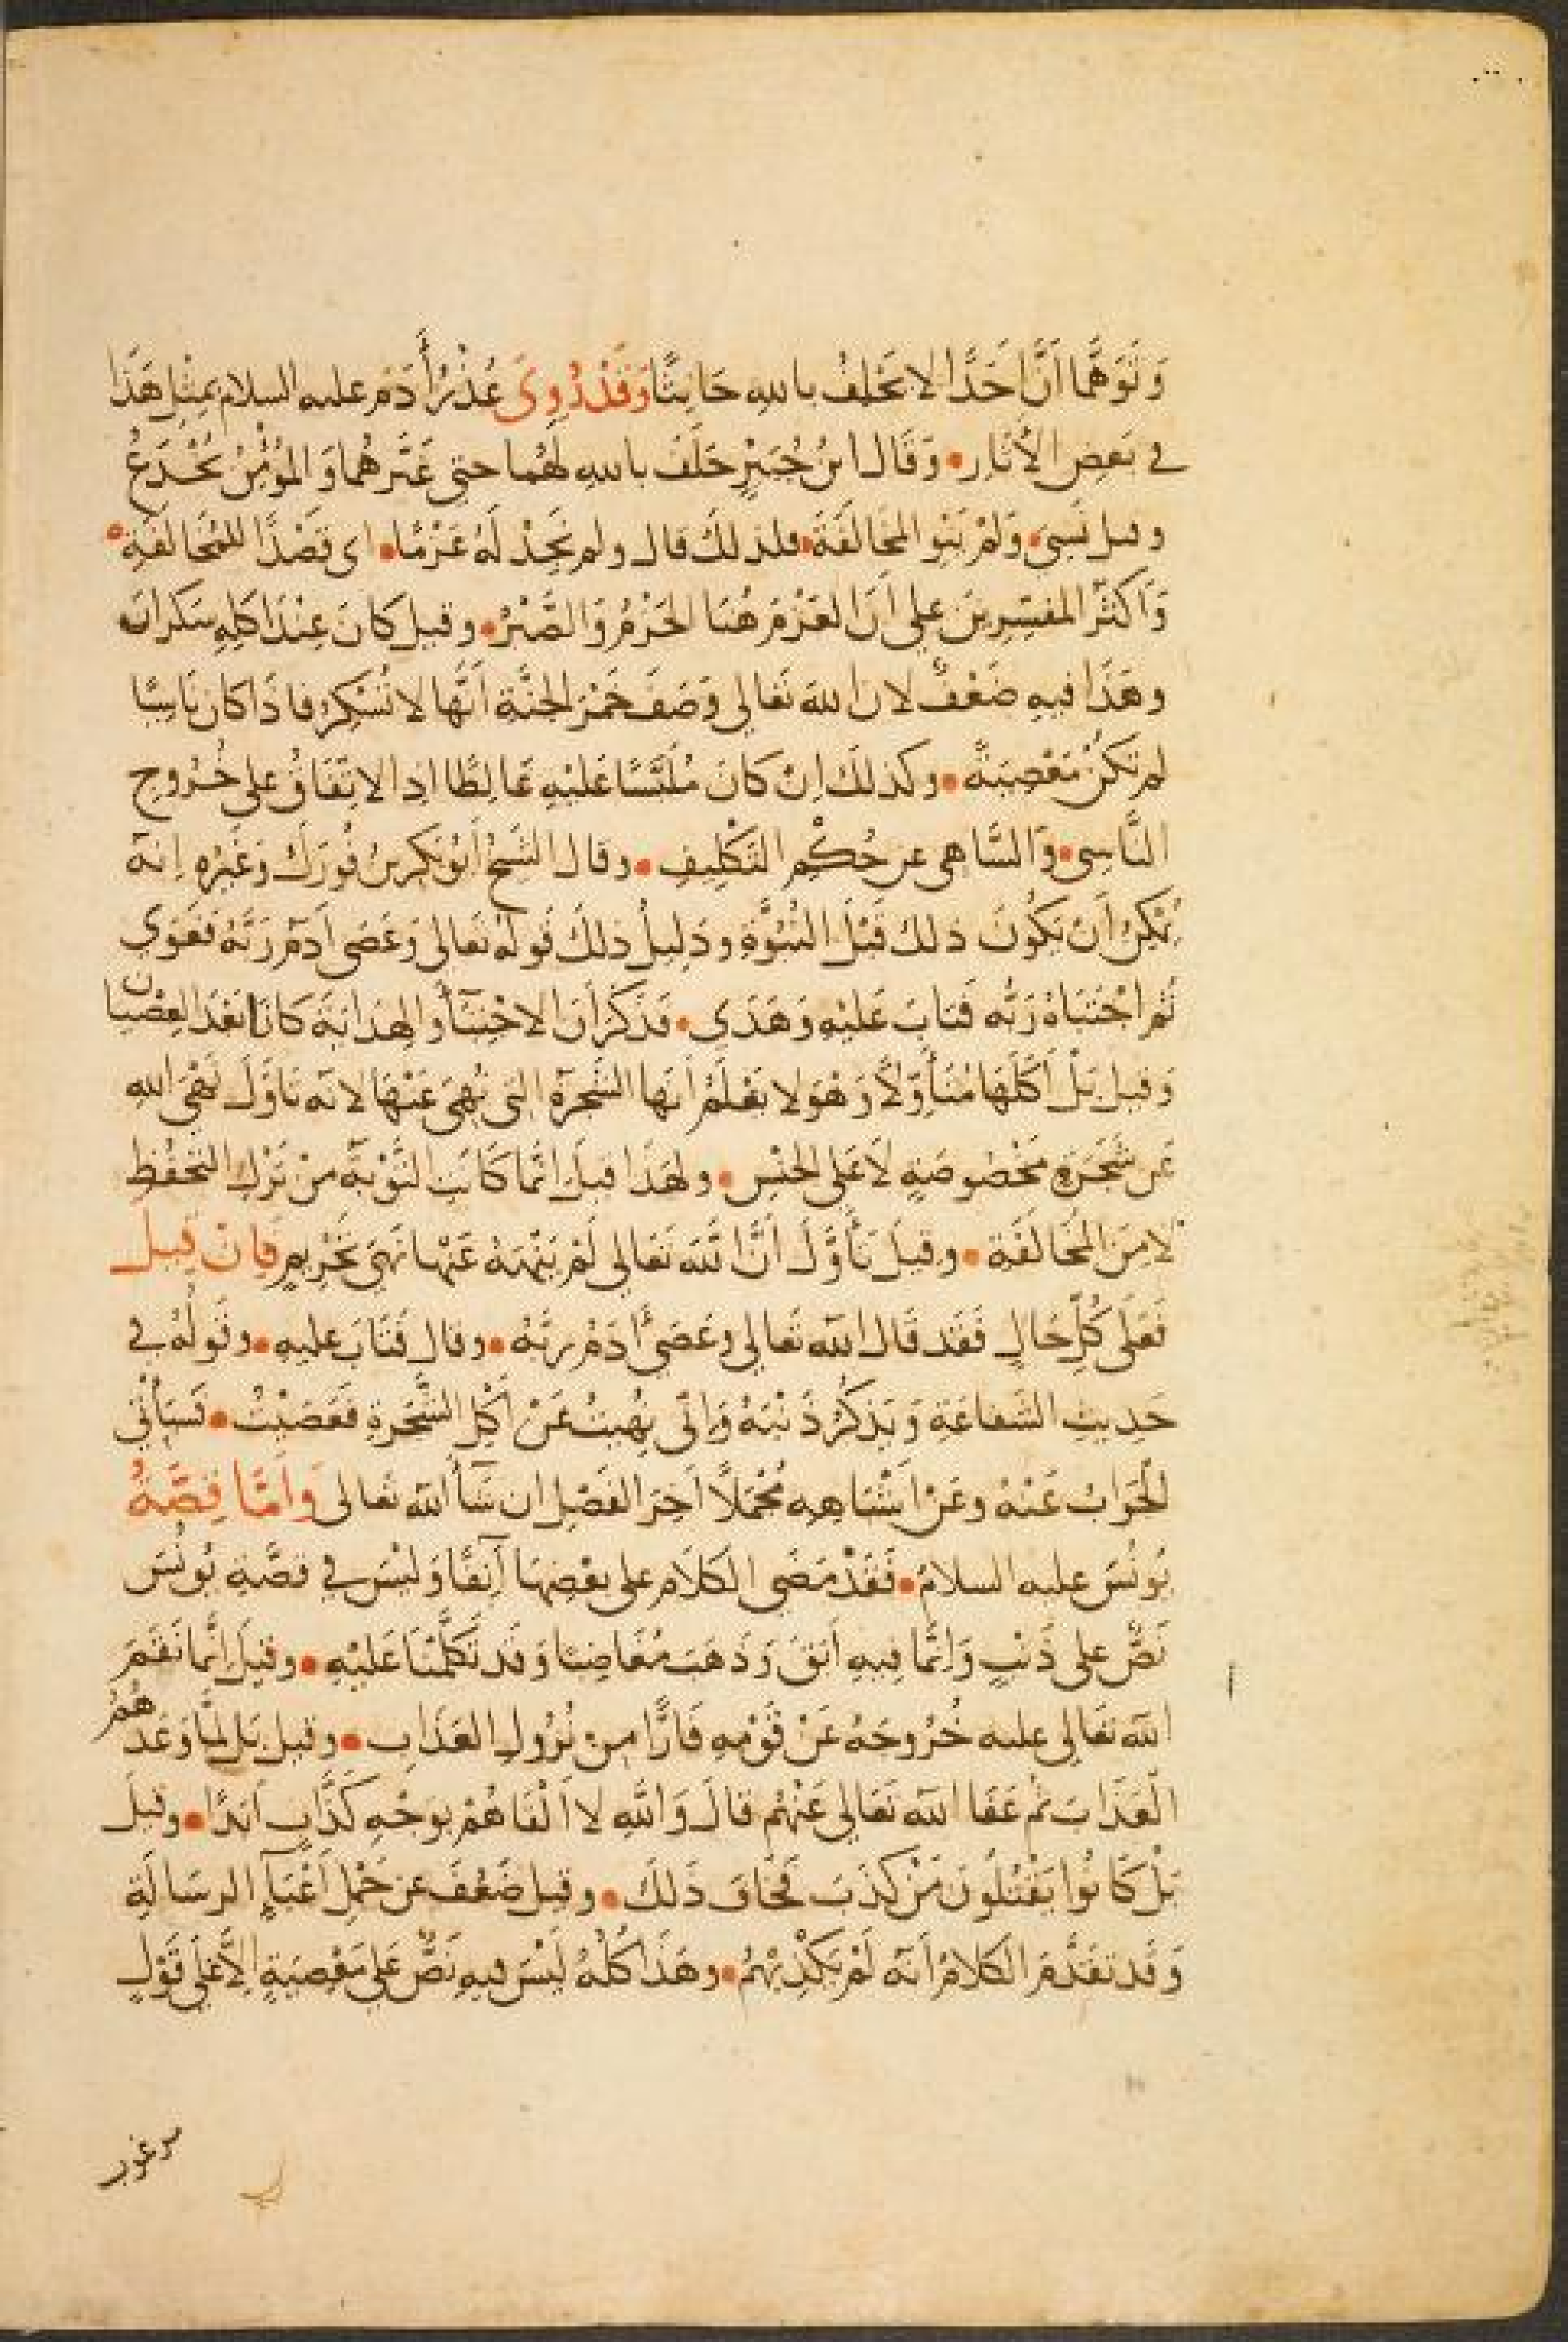 وَتَوَهَّمَا اَنَّ اَحَدًا لا يَحْلِفُ بالله حَانِثًا وَقَدْ رُوِىَ عُذْرُ أَدَمَ عليه السلام بِمِثْلِ هَذَا
في بَعضِ الْأَثَارِ • وَقَال ابنُ جُبَيْرٍ حَلَفَ بالله لَهُما حتى غَرَّهُما وَالمُؤْمِنُ يُخْدَعُ
وقيل نَسِىَ • وَلَمْ يَنْوِ المُخَالَفَةَ • فلذلكَ قال ولم نَجِدْ لَهُ عَزْمًا • اى قَصْدًا لِلمُخَالَفَةِ •
وَاَكْثَرُ المفَسِّرِينَ على اَنَّ العَزْمَ هُنَا الحَزْمُ وَالصَّبْرُ • وقيل كانَ عِنْدَ اَكْلِهِ سَكرانَ
وهَذَا فيهِ ضَعْفٌ لان اللهَ تَعَالى وَصَفَ خَمْرَ الجنَّةِ اَنَّها لا تُسْكِرُ فاذَا كان نَاسِيًا
لم تَكنْ مَعْصِيَةً • وكذلكَ اِنْ كانَ مُلَبَّسًا عَلَيْهِ غَالِطًا اذ الاتِّفَاقُ على خُرُوجِ
النَّاسِى • وَالسَّاهِى عن حُكْمِ التَّكْلِيفِ • وقال الشَّيْخُ اَبُو بَكرِ بنُ فُورَكَ وَغَيْرُهِ اِنّهُ
يُمْكِنُ اَنْ يَكُونَ ذلكَ قَبْلَ النُّبُوَّةِ ودَلِيلُ ذلكَ قَولهُ تَعَالى وَعَصَى اَدَمُ رَبَّهُ فَغَوَى
ثُم اجْتَبَاهُ رَبُّه فَتابَ عَلَيْهِ وَهَدَى • فَذَكَرَ اَنَّ الاجْتِبَأَ وَالهِدَايَةَ كانَا بَعْدَ العِصْيَانِ
وَقيل بَلْ اَكَلَهَا مُتَأوِّلاً وَهْوَ لا يَعْلَمُ اَنَّها الشَّجَرَةُ التى نُهِىَ عَنْهَا لانه تَاَوَّلَ نَهْىَ اللهِ
عَن شَجَرَةٍ مَخْصُوصَةٍ لاَ عَلى الجنْسِ • ولِهَذَا قيلَ اِنَّمَا كَانَتِ التَّوْبَةُ مِنْ تَرْكِ التَّحَفُّظِ
لا مِنَ المُخَالَفَةِ • وقيلَ تَأَوَّلَ اَنَّ اللهَ تَعَالى لَمْ يَنْهَهُ عَنْها نَهْىَ تَحْرِيمٍ فَاِنْ قيل
فَعَلَى كُلِّ حَالٍ فَقَد قَالَ اللهُ تَعَالى وعَصَى أَدَمُ رَبَّهُ • وقال فَتَابَ عليهِ • وقَولُهُ في
حَدِيثِ الشَفاعَةِ وَيَذْكُرُ ذَنْبَهُ وَاِنّى نُهِيتُ عَنْ اَكْلِ الشَّجَرَةِ فَعَصَيْتُ • فَسَيَأْتِى
الْجَوَابُ عَنْهُ وعَنْ اَشْبَاهِهِ مُجْمَلاً اَخِرَ الفَصْلِ ان شَأَ الله تعالى وَاَمَّا قِصَّةُ
يُونُسَ عليه السلامُ • فَقَدْ مَضَى الكَلاَم على بَعْضِهَا آنِفًا وَلَيْسَ في قصَّةِ يُونُسَ
نَصٌّ على ذَنْبٍ وَاِنَّمَا فيهِ اَبَقَ وَذَهَبَ مُغَاضِبًا وَقَد تَكَلَّمْنَا عَلَيْهِ • وقيلَ اِنَّما نَقَمَ
اللهُ تَعَالى عليه خُرُوجَهُ عَنْ قَوْمِهِ فَارًّا مِن نُزُولِ العَذَابِ • وقيل بَل لَمَّا وَعَدَهُمُ
الْعَذَابَ ثُمَّ عَفَا اللهُ تَعَالى عَنْهُمْ قالَ وَاللهِ لا اَلْقَاهُمْ بِوَجْهِ كَذَّابٍ اَبَدًا • وقيلَ
بَلْ كَانُوا يَقْتُلُونَ مَنْ كَذَبَ فَخَافَ ذَلكَ • وقيل ضَعُفَ عَن حَمْلِ اَعْبَاءِ الرسَالَةِ
وَقَد تقَدَّمَ الكَلامُ اَنّه لَمْ يَكْذِبْهُمْ • وهَذَا كُلُّهُ لَيْسَ فيهِ نَصٌّ عَلى مَعْصِيَةٍ اِلاَّ عَلَى قَوْلٍ
مرغوب